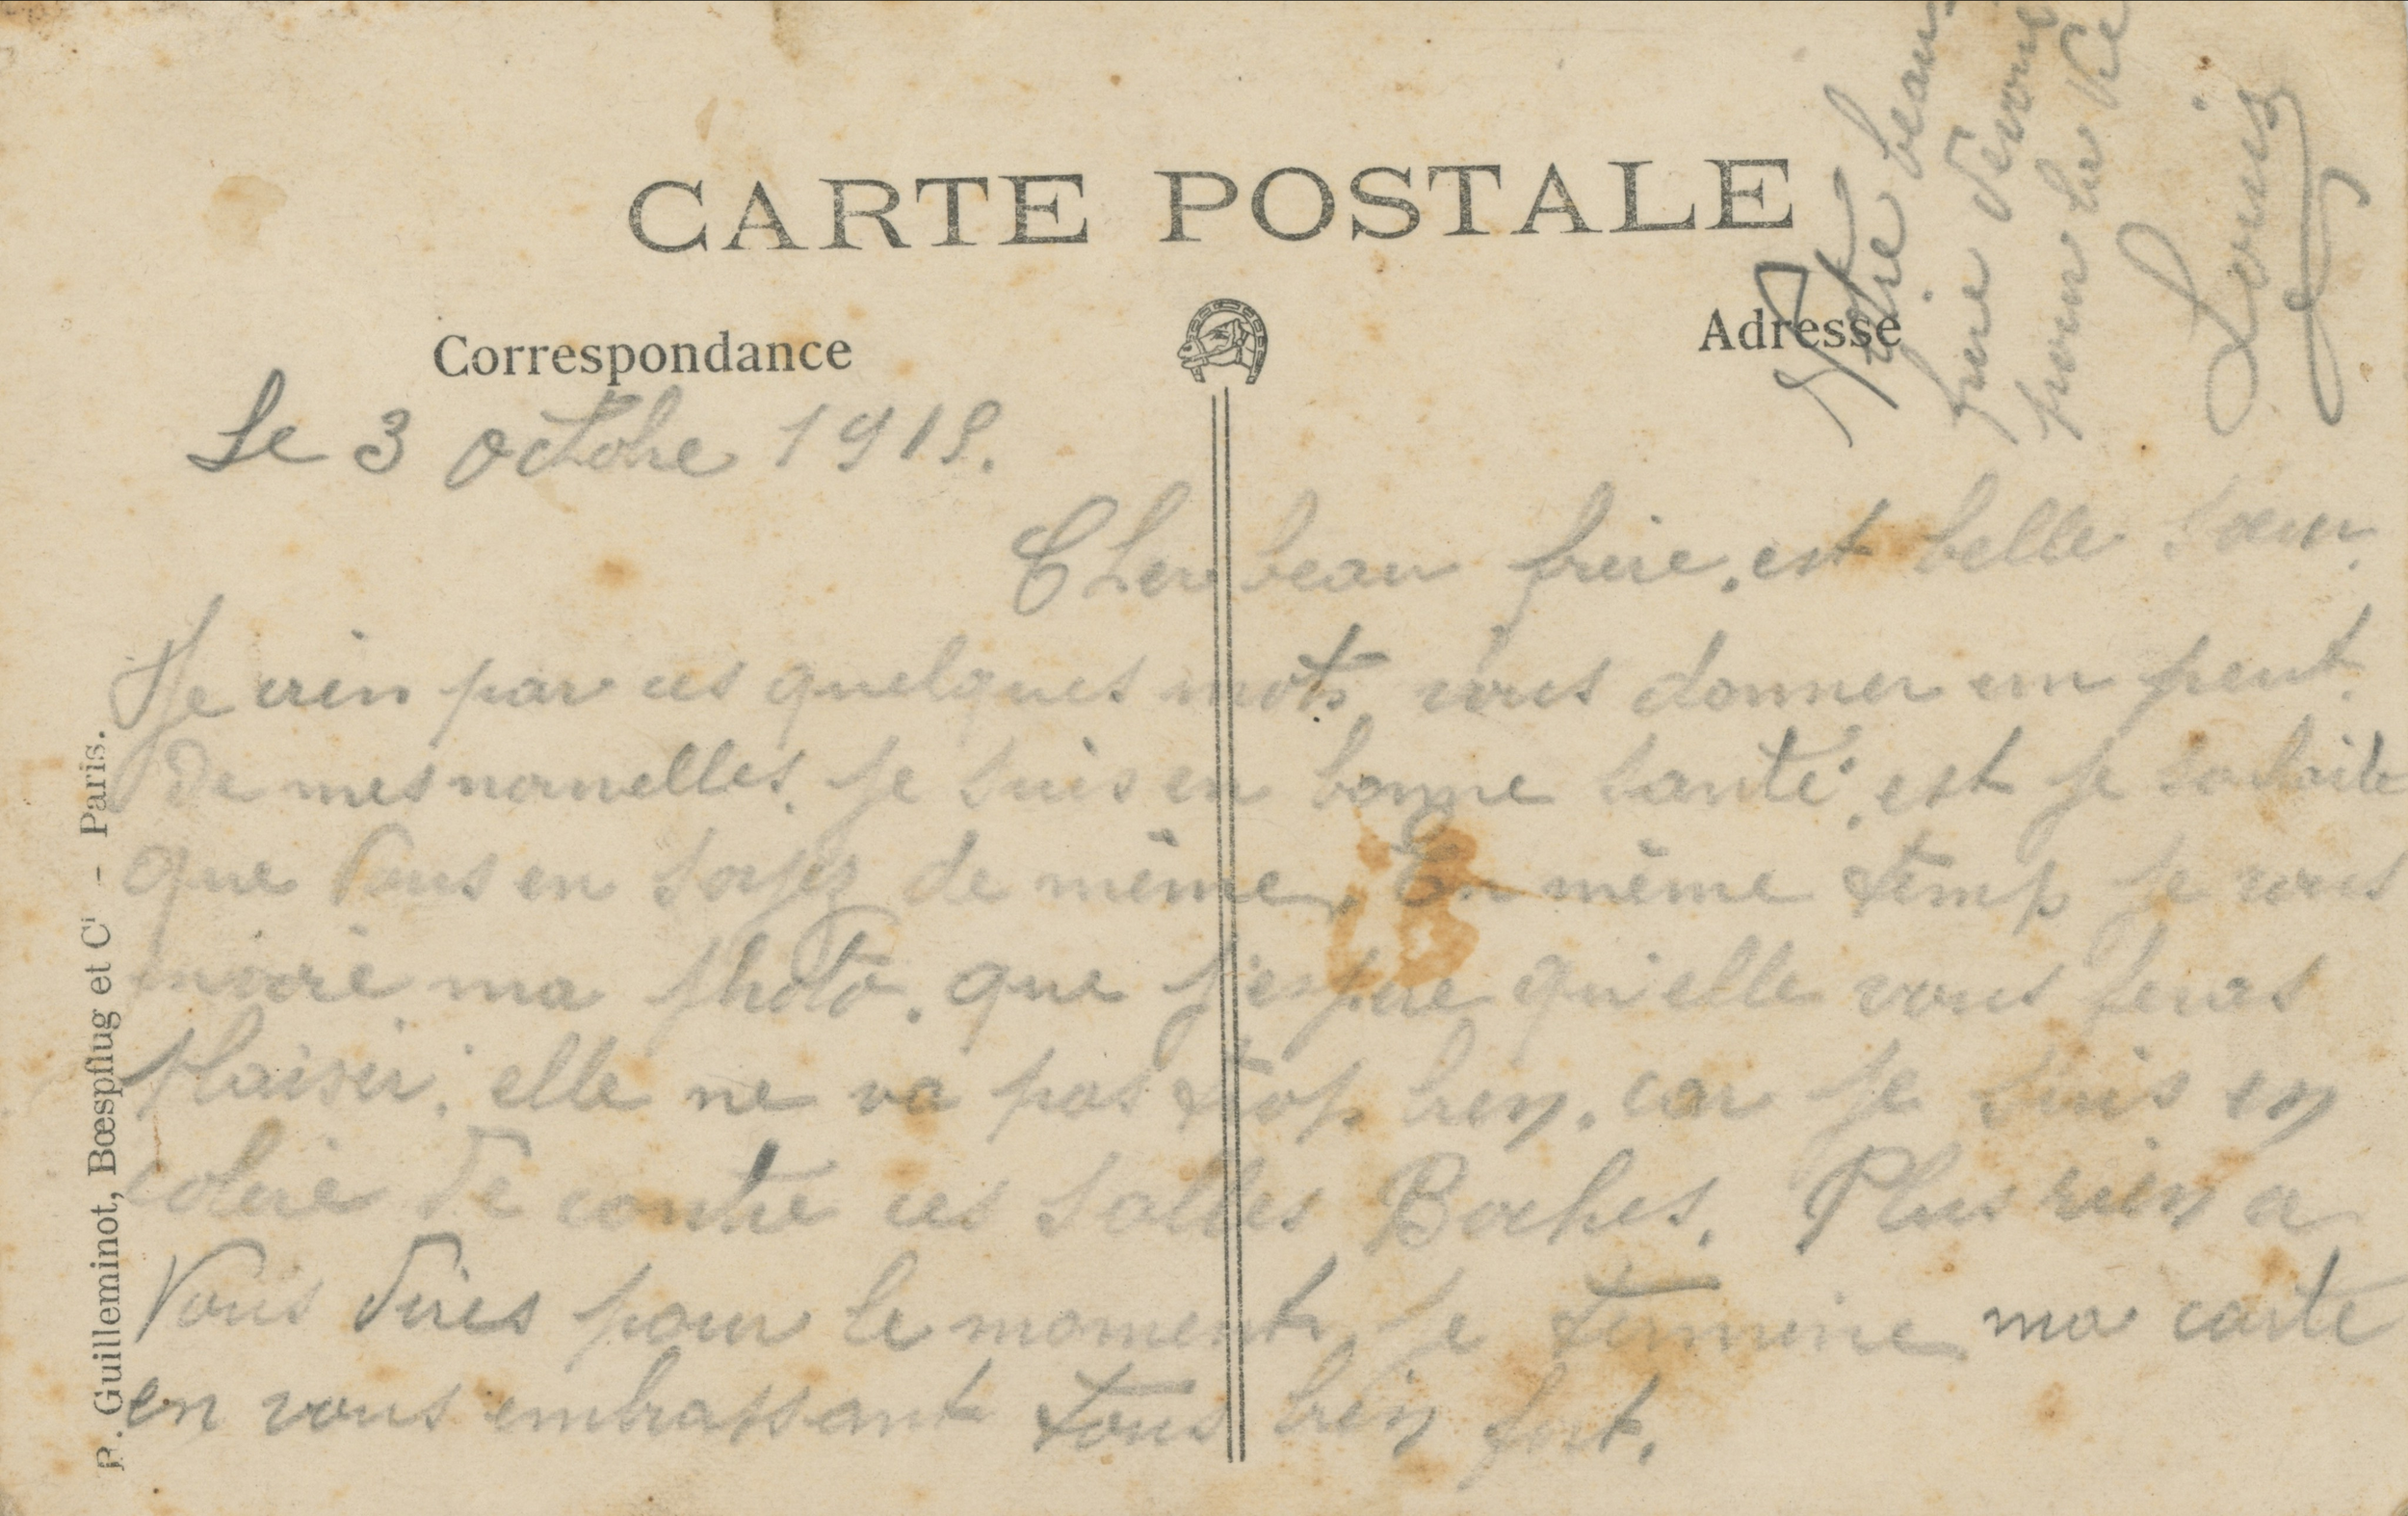 CARTE POSTALE
Correspondance
Adresse
Le 3 octobre 1918.
Cher beau frère, est belle sœur.
Je vien par ces quelques mots vous donner un peut
de mes nouvelles. Je suis en bonne santé, est je souhaite
que vous en soyez de même. En même temp je vous
envoiré ma photo. que j'espère qu'elle vous feras
plaisir. elle ne va pas trop bien. car je suis en
colère de contre ces salles Boches. Plus rien a
vous dires pour le moment, je termine ma carte
en vous embrassant tous bien fort.
Votre beau
frère dévoué
pour la vie
Louis
R. Guilleminot, Bœspflug et Cⁱ - Paris.